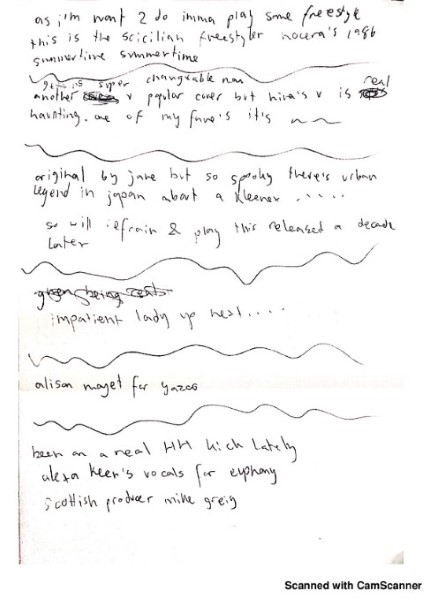 as i'm wont 2 do imma play some freestyle
this is the scicilian freestyler nocera's 1986
summertime summertime
is super changeable man
another v popular cover but hira's v is real
haunting. one of my fave's it's ~~
original by jane but so spooky there's urban
legend in japan about a kleenex .....
so will refrain & play this released a decade
later
impatient lady up next....
alison moyet for yazoo
been on a real HH kick lately
alexa keer's vocals for euphony
scottish producer mike greig
Scanned with CamScanner